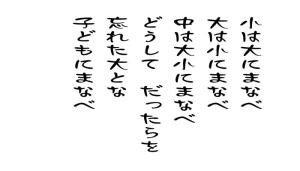 小は大にまなべ
大は小にまなべ
中は大小にまなべ
どうして　だったらを
忘れた大とな
子どもにまなべ